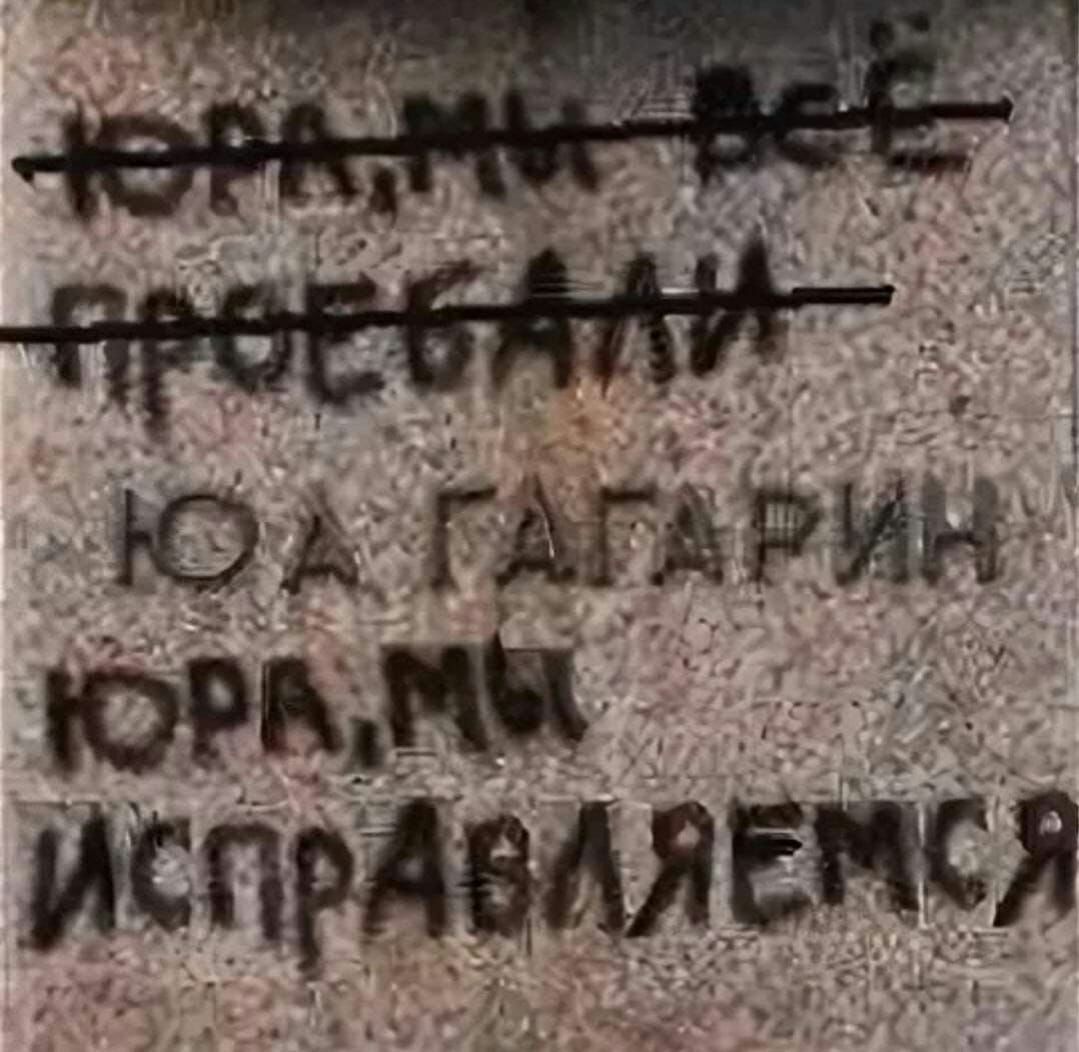 ЮРА, МЫ ВСЁ
ПРОЕБАЛИ
Ю А ГАГАРИН
ЮРА, МЫ
ИСПРАВЛЯЕМСЯ